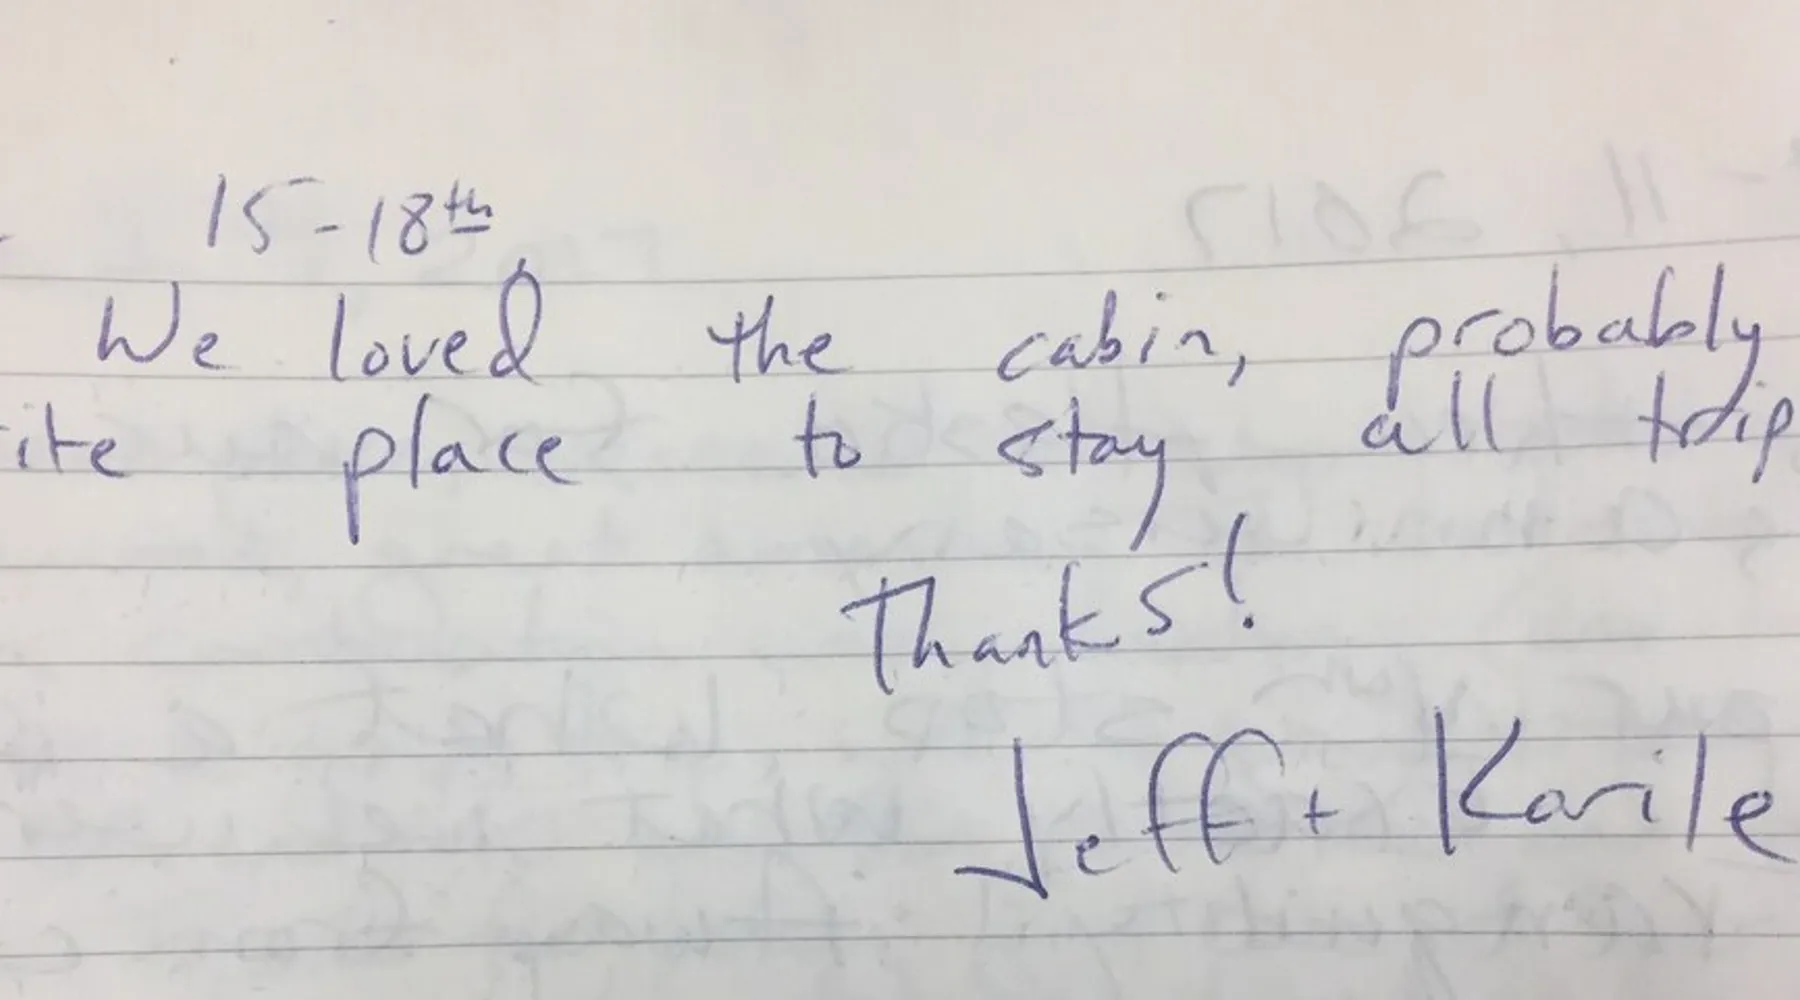 15-18th
We loved the cabin, probably
ite place to stay all trip
Thanks!
Jeff + Karile